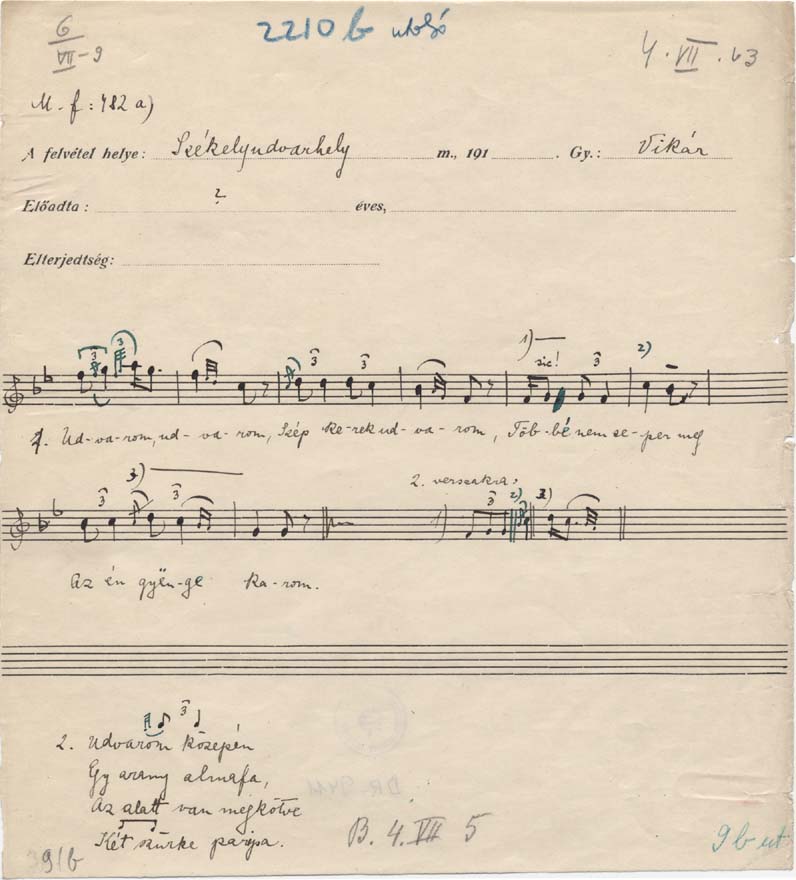 6
VII-9
2210 b utolsó
4. VII. b3
M. f: 482 a)
A felvétel helye: Székelyudvarhely m., 191 . Gy.: Vikár
Előadta: ? éves,
Elterjedtség:
3 3 3 3 1) sic! 3 2)
1. Ud-va-rom, ud-va-rom, Szép ke-rek ud-va-rom, Töb-bé nem se-per meg
3 3) 3 2. versszakra: 1) 3 2) 3)
Az én gyën-ge ka-rom.
3
2. Udvarom közepén
Egy arany almafa,
Az alatt van megkötve
Két szürke paripa.
B. 4. VII 5
9 b ut
91/b